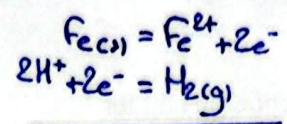 Fe(s) = Fe²⁺ + 2e⁻
2H⁺ + 2e⁻ = H₂(g)